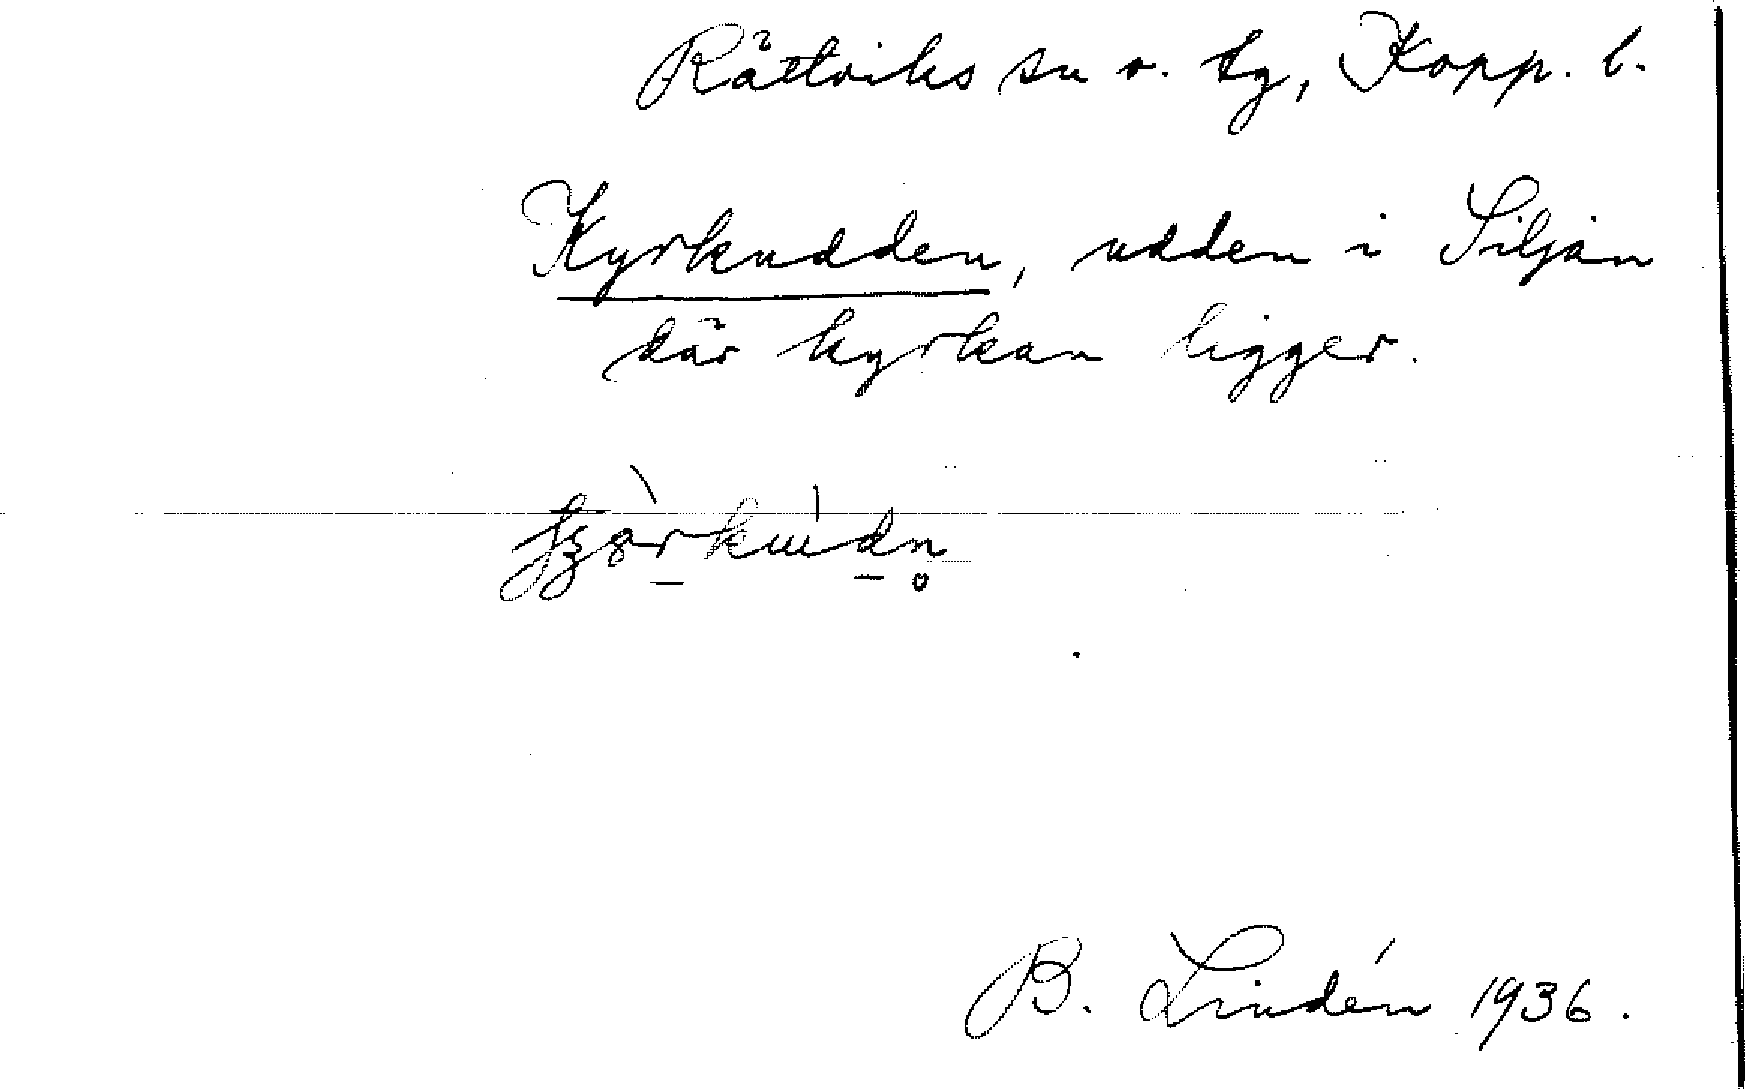 Rättviks sn o. tg, Kopp. l.
Kyrkudden, udden i Siljan
där kyrkan ligger.
B. Lindén 1936.